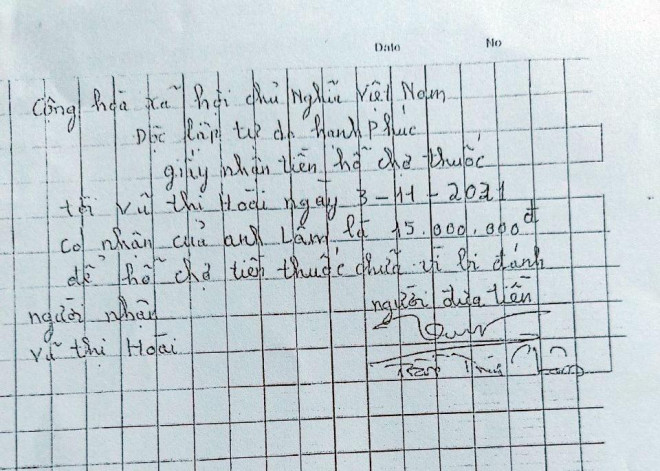 Date No
Cộng hòa xã hội chủ Nghĩa Việt Nam
Độc lập tự do hanh Phúc
giấy nhận tiền hỗ chợ thuốc
tôi vũ thi Hoài ngày 3-11-2021
có nhận của anh Lâm là 15.000.000đ
để hỗ chợ tiền thuốc chữa vì bị đánh
người nhận người đưa tiền
vũ thị Hoài